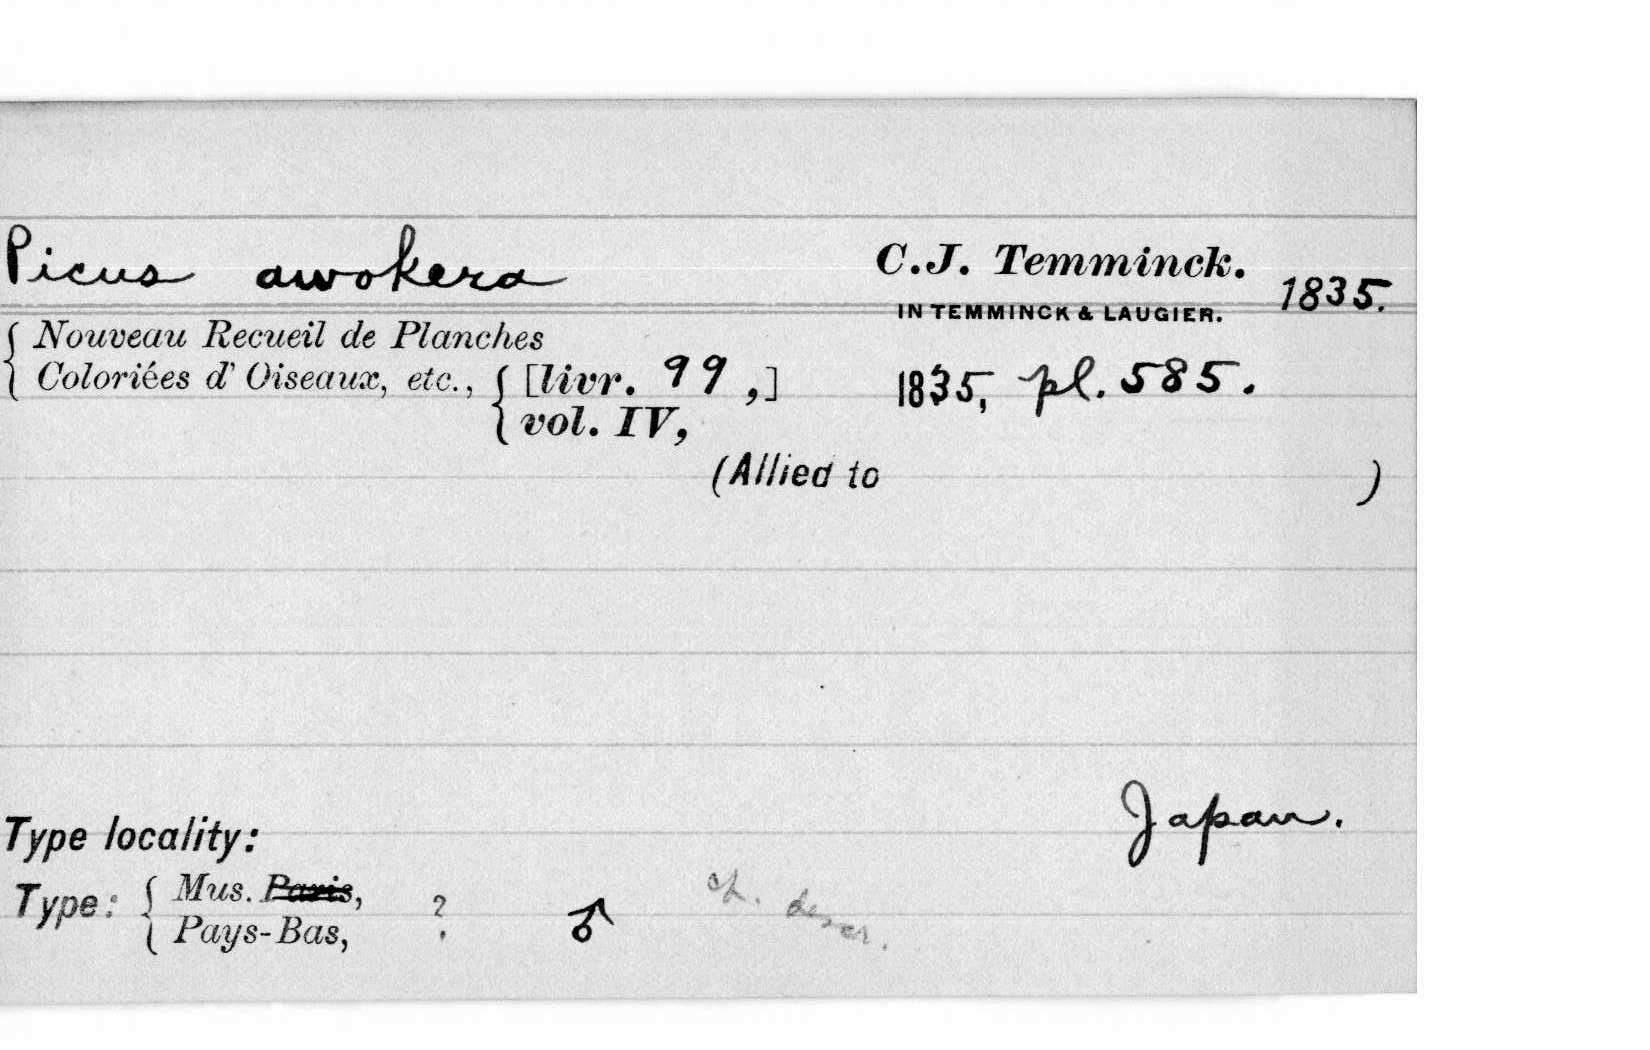 Picus awokera C.J. Temminck. 1835.
IN TEMMINCK & LAUGIER.
{ Nouveau Recueil de Planches
Coloriées d' Oiseaux, etc., { [livr. 99,] 1835, pl. 585.
vol. IV,
(Allied to )
Japan.
Type locality:
Type: { Mus. Paris,
Pays-Bas, ? ♂ cf. descr.